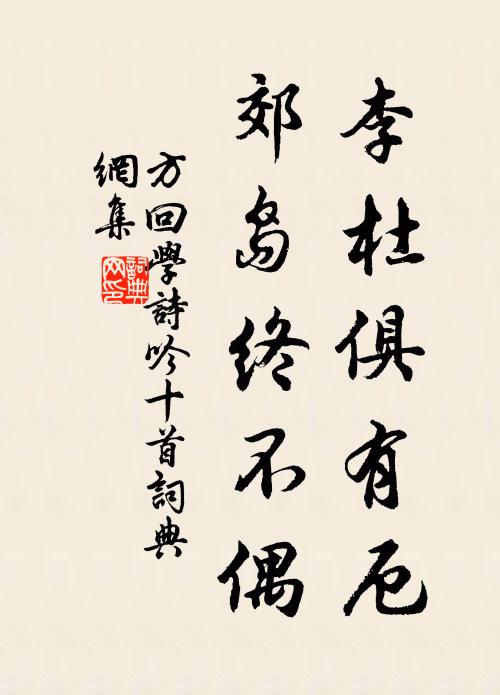 李杜俱有厄
郊島終不偶
方回學詩吟十首詞典
網集
詞典網印